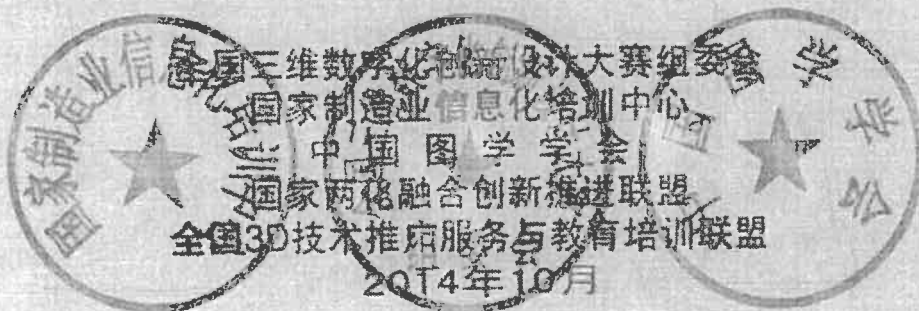 全国三维数字化创新设计大赛组委会
国家制造业信息化培训中心
中国图学学会
国家两化融合创新推进联盟
全国3D技术推广服务与教育培训联盟
2014年10月
国家制造业信息化培训
学会